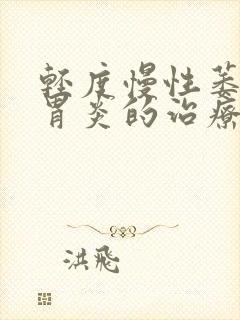 輕度慢性萎
胃炎的治療
洪飛